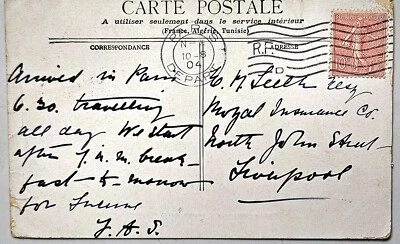 CARTE POSTALE
A utiliser seulement dans le service intérieur
(France, Algérie, Tunisie)
CORRESPONDANCE
ADRESSE
R.F.
PARIS
10-8
04
DEPART
Arrived in Paris
6.30 travelling
all day. We start
after 7 a.m. break-
fast to-morrow
for Lucerne
J.A.S.
C H Leeth Esq
Royal Insurance Co.
North John Street
Liverpool